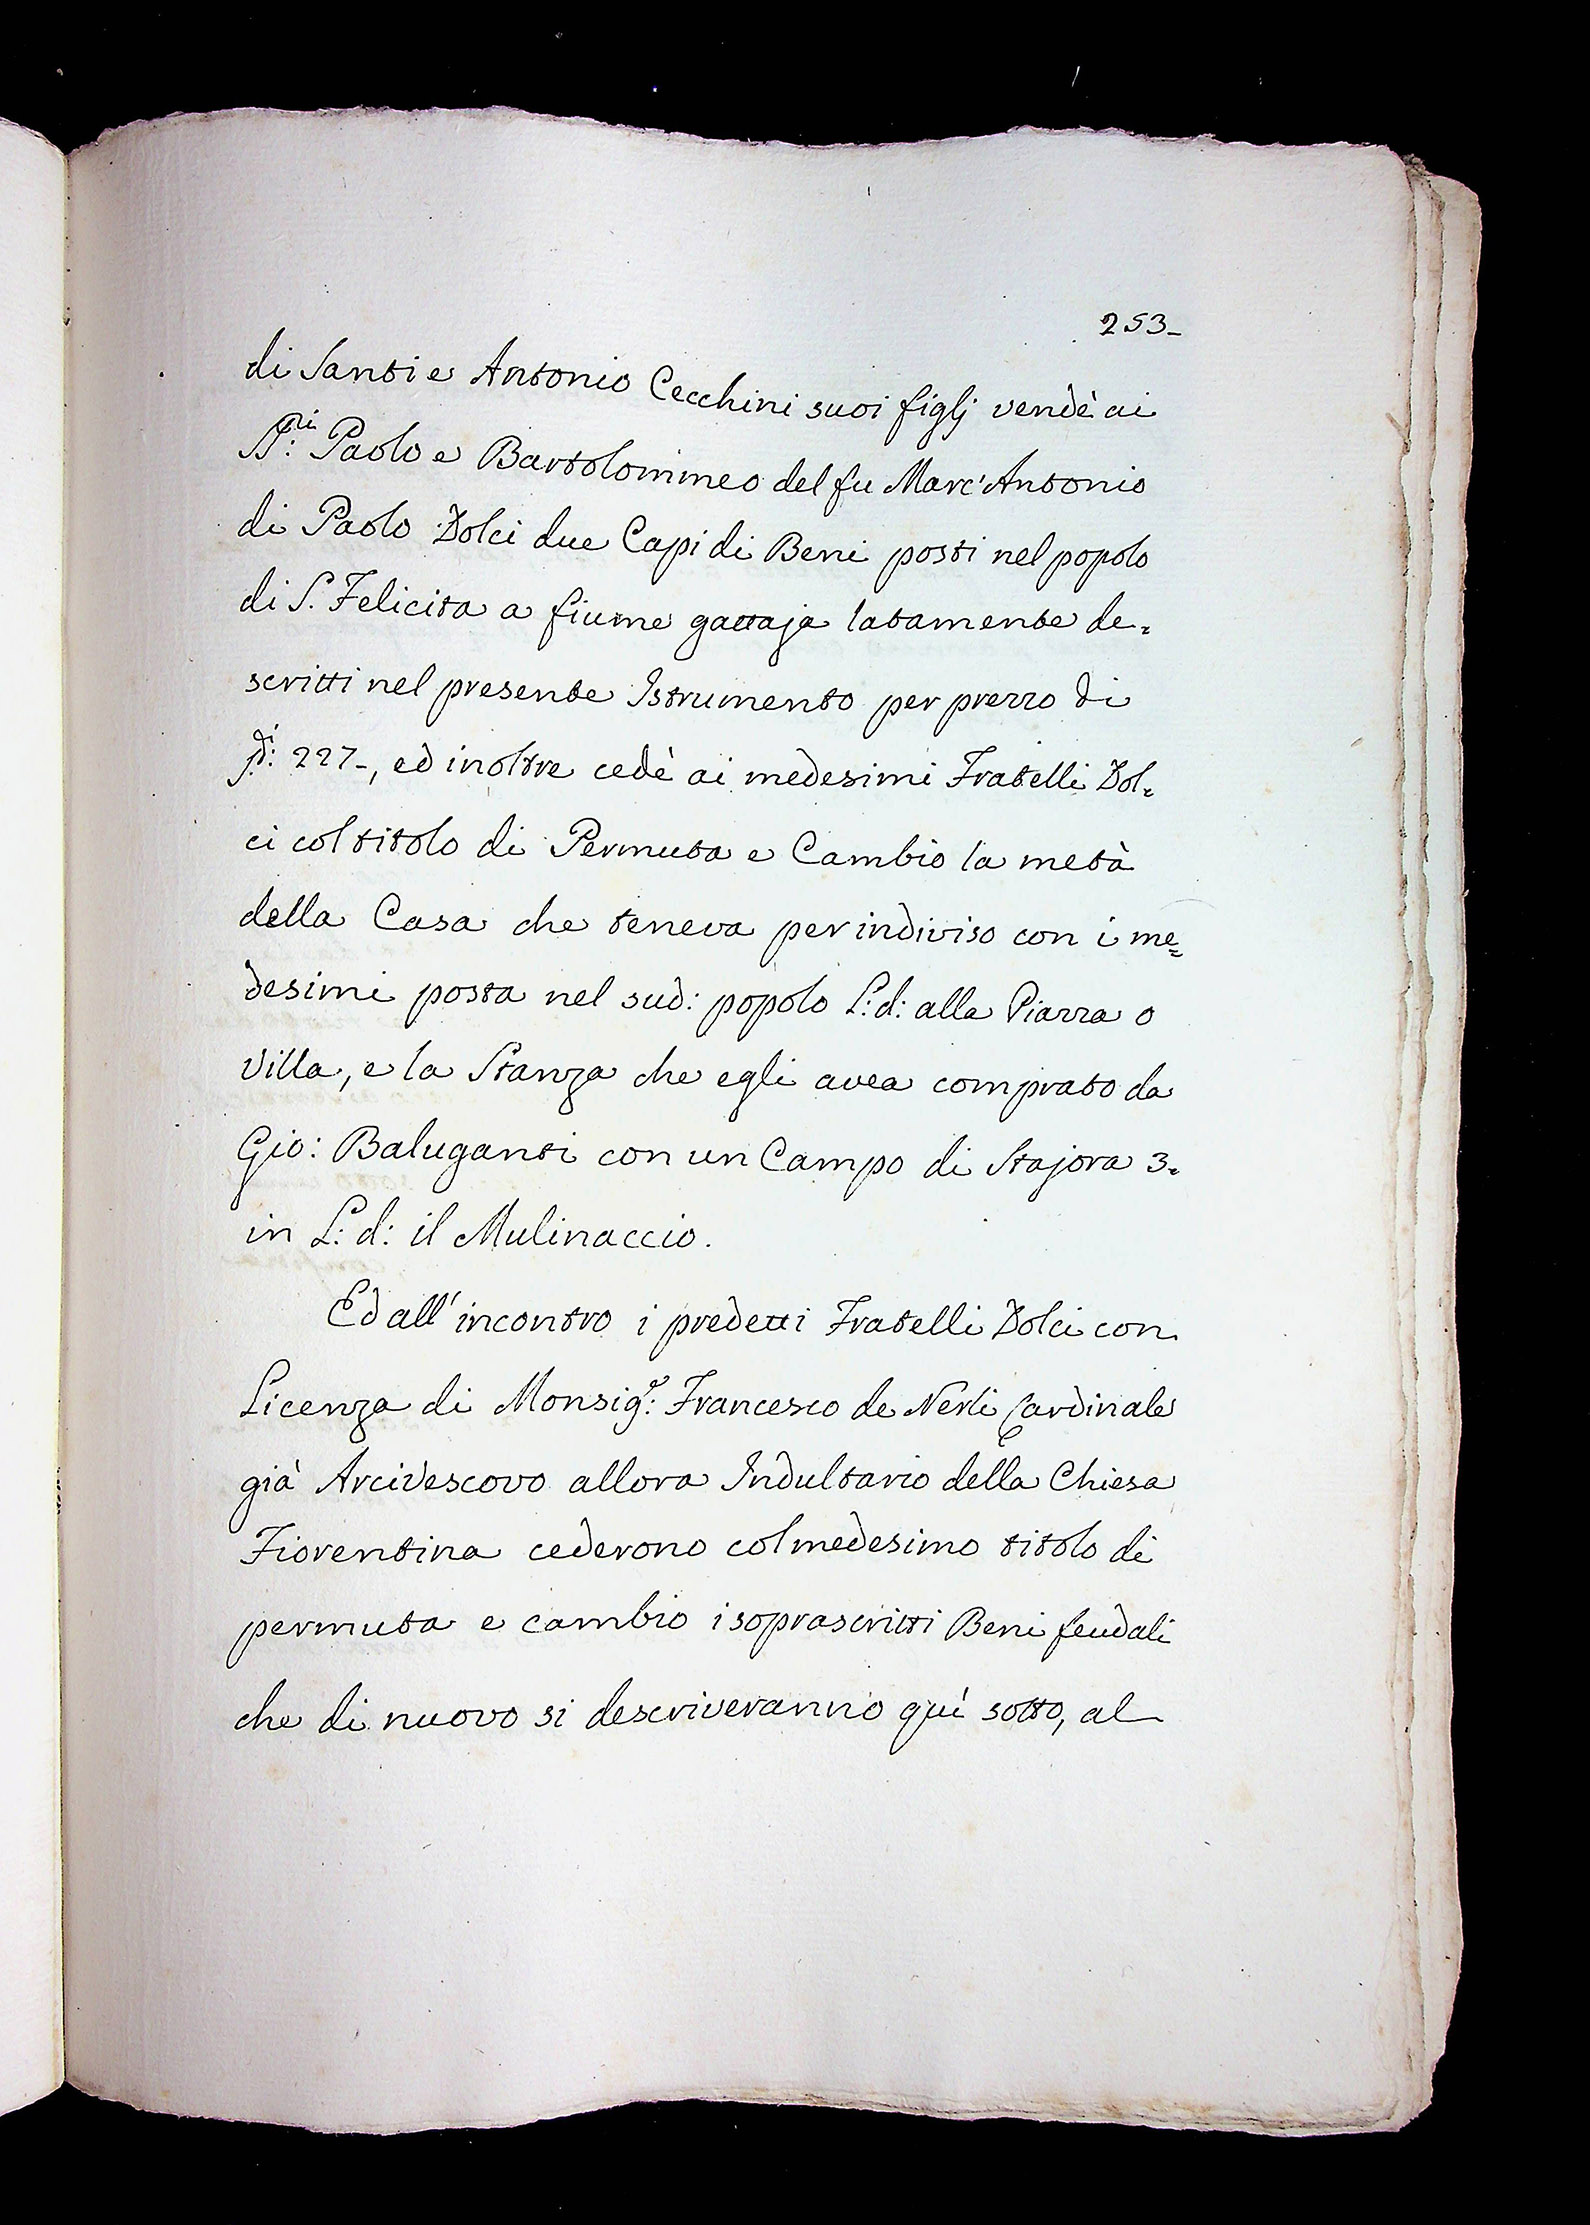 253-
di Santi e Antonio Cecchini suoi figlj vendè ai
SS:ri Paolo e Bartolommeo del fu Marc'Antonio
di Paolo Dolci due Capi di Beni posti nel popolo
di S. Felicita a fiume gattaja latamente de=
scritti nel presente Istrumento per prezzo di
227-, ed inoltre cedè ai medesimi Fratelli Dol=
ci col titolo di Permuta e Cambio la metà
della Casa che teneva per indiviso con i me=
desimi posta nel sud: popolo L: d: alla Piazza o
Villa, e la Stanza che egli avea comprato da
Gio: Baluganti con un Campo di Stajora 3-
in L: d: il Mulinaccio.
Ed all'incontro i predetti Fratelli Dolci con
Licenza di Monsig:e Francesco de Nerli Cardinale
già Arcivescovo allora Indultario della Chiesa
Fiorentina cederono col medesimo titolo di
permuta e cambio i soprascritti Beni feudali
che di nuovo si descriveranno quì sotto, al